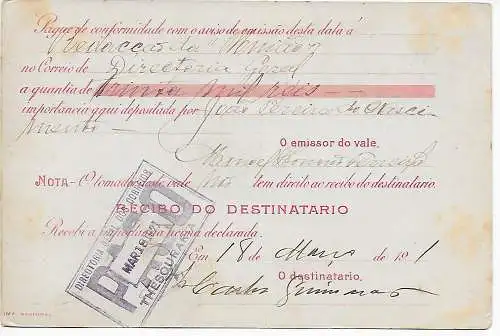 Pague de conformidade com o aviso de emissão desta data á
Redacção da
no Correio de Directoria Geral
a quantia de mil réis
importancia aqui depositada por João Pereira do Nasci
mento
O emissor do vale,
NOTA- O tomador deste vale tem direito ao recibo do destinatario.
RECIBO DO DESTINATARIO
Recebi a importancia acima declarada.
Em 18 de Março de 191
O destinatario,
Carlos Guimarães
DIRECTORIA DOS CORREIOS
PAGO
MAR 18
THESOURARIA
IMP. NACIONAL